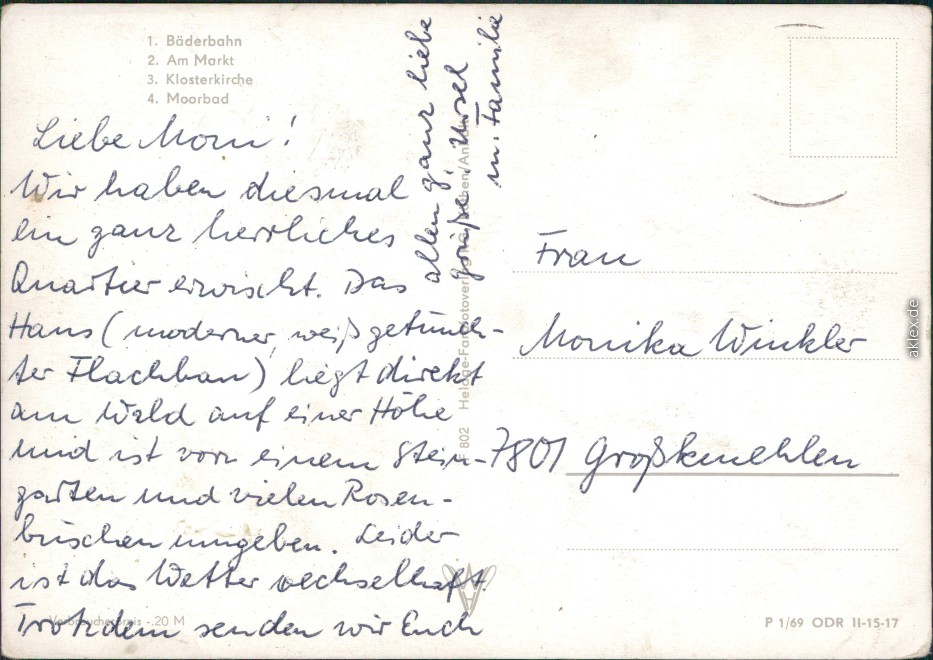 1. Bäderbahn
2. Am Markt
3. Klosterkirche
4. Moorbad
Liebe Moni!
Wir haben diesmal
ein ganz herrliches
Quartier erwischt. Das
Haus (moderner, weiß getünch-
ter Flachbau) liegt direkt
am Wald auf einer Höhe
und ist von einem Stein-
garten und vielen Rosen-
büschen umgeben. Leider
ist das Wetter wechselhaft.
Trotzdem senden wir Euch
allen ganz liebe
Grüße, Ursel
m. Familie
Frau
Monika Winkler
7801 Großkmehlen
802 Heldge-Farbfotoverlag
Verbraucherpreis -.20 M
P 1/69 ODR II-15-17
aklex.de